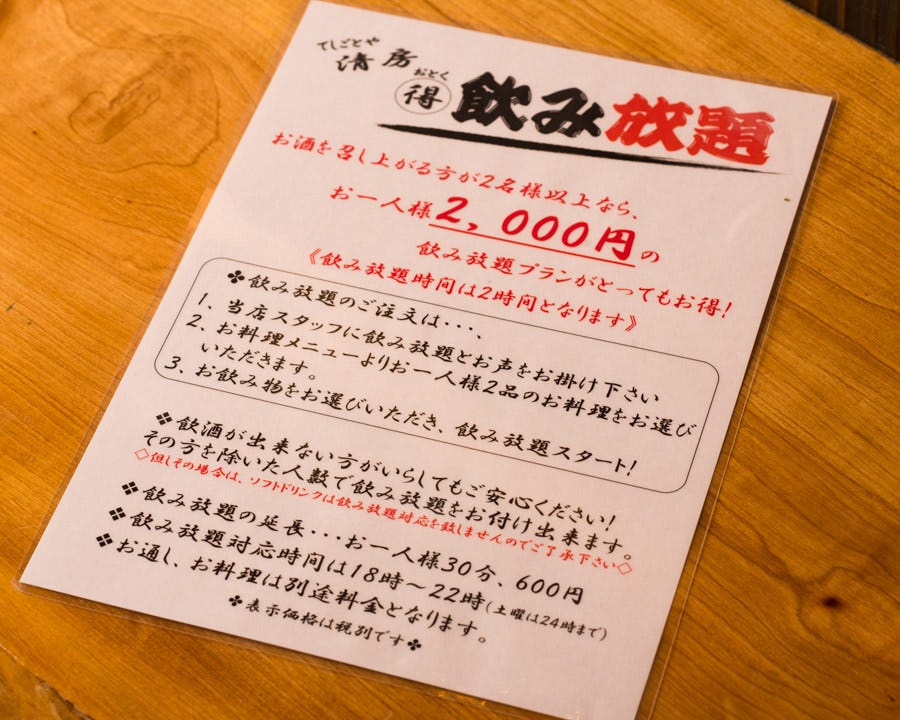 てしごとや
清房
おとく
得 飲み放題
お酒を召し上がる方が2名様以上なら、
お一人様2,000円の
飲み放題プランがとってもお得!
《飲み放題時間は2時間となります》
✤飲み放題のご注文は・・・
1、当店スタッフに飲み放題とお声をお掛け下さい
2、お料理メニューよりお一人様2品のお料理をお選び
いただきます。
3、お飲み物をお選びいただき、飲み放題スタート!
❖飲酒が出来ない方がいらしてもご安心ください!
その方を除いた人数で飲み放題をお付け出来ます。
◇但しその場合は、ソフトドリンクは飲み放題対応を致しませんのでご了承下さい◇
❖飲み放題の延長・・・お一人様30分、600円
❖飲み放題対応時間は18時～22時(土曜は24時まで)
❖お通し、お料理は別途料金となります。
✤表示価格は税別です✤